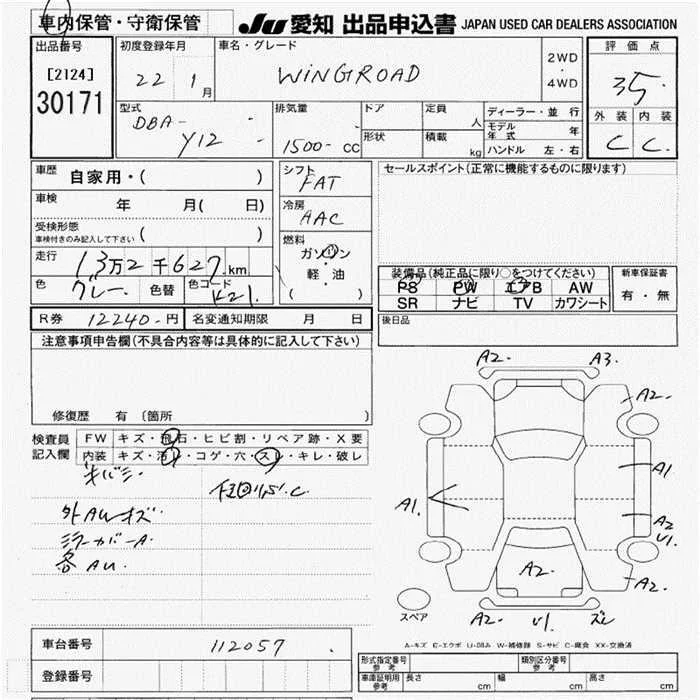 車内保管・守衛保管 JU 愛知 出品申込書 JAPAN USED CAR DEALERS ASSOCIATION
出品番号 初度登録年月 車名・グレード 2WD ・ 4WD 評価点
[2124] 22 1 月 WINGROAD 3.5
30171 型式 排気量 ドア 定員 人 ディーラー・並行 外装 内装
DBA- Y12 1500 cc 形状 積載 kg モデル年式 年 C C
ハンドル 左・右
車歴 自家用・( ) シフト FAT セールスポイント(正常に機能するものに限ります)
車検 年 月( 日) 冷房 AAC
受検形態 車検付きのみ記入して下さい ( ) 燃料 ガソリン
走行 13万2千627km 軽・油 装備品(純正品に限り○をつけてください) 新車保証書
色 グレー 色替 色コード K21 ( ) PS PW エアB AW 有・無
SR ナビ TV カワシート
R券 12240-円 名変通知期限 月 日 後日品
注意事項申告欄(不具合内容等は具体的に記入して下さい)
修復歴 有 〔箇所 〕
検査員 FW キズ・飛石・ヒビ割・リペア跡・X要
記入欄 内装 キズ・汚レ・コゲ・穴・スレ・キレ・破レ
外AUキズ
ミラーカバーA
各AU
A2 A3
A2
A1
A1
A2 U1
A2
A2
A2 U1 ズレ
スペア
A-キズ E-エクボ U-凹み W-補修跡 S-サビ C-腐食 XX-交換済
車台番号 112057
登録番号
型式指定番号 参考 類別区分番号 参考
車庫証明用 参考 長さ cm 幅 cm 高さ cm